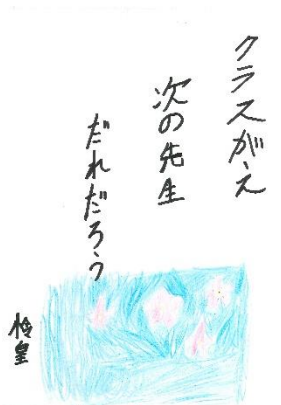 クラスがえ
次の先生
だれだろう
怜皇